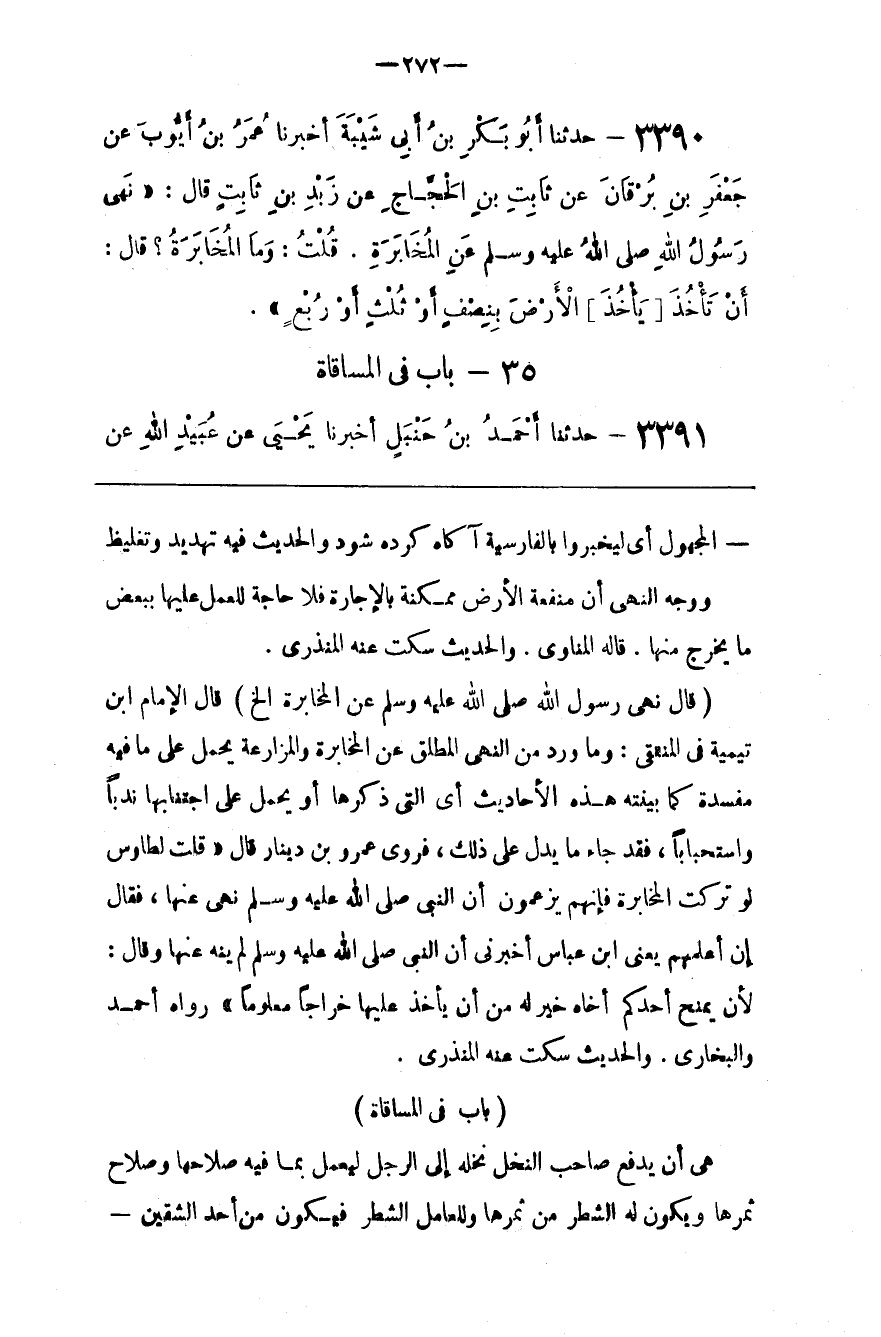 —٢٧٢—
٣٣٩٠ — حدثنا أَبُو بَكْرِ بنُ أَبِي شَيْبَةَ أخبرنا عُمَرُ بنُ أَيُّوبَ عن
جَعْفَرِ بنِ بُرْقَانَ عن ثَابِتِ بنِ الْحَجَّاجِ عن زَيْدِ بنِ ثَابِتٍ قال : « نَهَى
رَسُولُ اللهِ صلى اللهُ عليه وسلم عَنِ المُخَابَرَةِ . قُلْتُ : وَمَا المُخَابَرَةُ ؟ قال :
أَنْ تَأْخُذَ [ يَأْخُذَ ] الْأَرْضَ بِنِصْفٍ أَوْ ثُلْثٍ أَوْ رُبْعٍ » .
٣٥ — باب فى المساقاة
٣٣٩١ — حدثنا أَحْمَدُ بنُ حَنْبَلٍ أخبرنا يَحْيَى عن عُبَيْدِ اللهِ عن
— المجهول أى ليخبروا بالفارسية آ كاه كرده شود والحديث فيه تهديد وتغليظ
ووجه النهى أن منفعة الأرض ممكنة بالإجارة فلا حاجة للعمل عليها ببعض
ما يخرج منها . قاله المناوى . والحديث سكت عنه المنذرى .
( قال نهى رسول الله صلى الله عليه وسلم عن المخابرة الخ ) قال الإمام ابن
تيمية فى المنتقى : وما ورد من النهى المطلق عن المخابرة والمزارعة يحمل على ما فيه
مفسدة كما بينته هذه الأحاديث أى التى ذكرها أو يحمل على اجتنابها ندباً
واستحباباً ، فقد جاء ما يدل على ذلك ، فروى عمرو بن دينار قال « قلت لطاوس
لو تركت المخابرة فإنهم يزعمون أن النبى صلى الله عليه وسلم نهى عنها ، فقال
إن أعلمهم يعنى ابن عباس أخبرنى أن النبى صلى الله عليه وسلم لم ينه عنها وقال :
لأن يمنح أحدكم أخاه خير له من أن يأخذ عليها خراجاً معلوماً » رواه أحمد
والبخارى . والحديث سكت عنه المنذرى .
( باب فى المساقاة )
هى أن يدفع صاحب النخل نخله إلى الرجل ليعمل بما فيه صلاحها وصلاح
ثمرها ويكون له الشطر من ثمرها وللعامل الشطر فيكون من أحد الشقين —